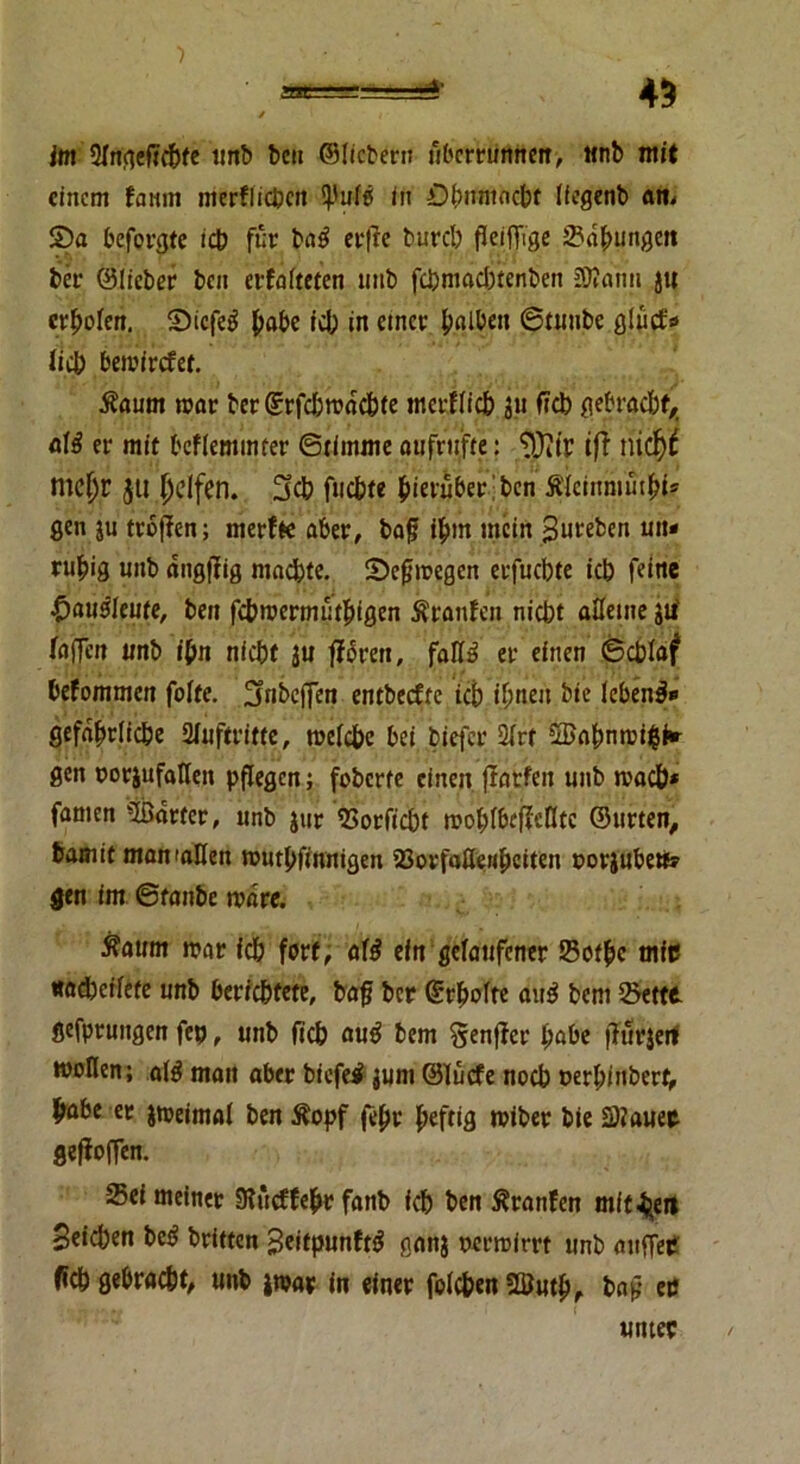 43
im Angesichte und den Gliedern überrunnen, und mit
einem kaum merklichen Puls in Ohnmacht liegend an.
Da besorgte ich für das erste durch fleissige Bähungen
der Glieder den erkalteten und schmachtenden Mann zu
erholen. Dieses habe ich in einer halben Stunde glück-
lich bewircket.
Kaum war der Erschwächte merklich zu sich gebracht,
als er mit beklemmter Stimme aufrufte: Mir ist nicht
mehr zu helfen. Ich suchte hierüber den Kleinmüthi-
gen zu trösten; merkte aber, daß ihm mein Zureden un-
ruhig und ängstig machte. Deßwegen ersuchte ich seine
Hausleute, den schwermüthigen Kranken nicht alleine zu
lassen und ihn nicht zu stören, falls er einen Schlaf
bekommen solte. Indessen entdeckte ich ihnen die lebens-
gefährliche Auftritte, welche bei dieser Art Wahnwitzi-
gen vorzufallen pflegen; foderte einen starken und wach-
samen Wärter, und zur Vorsicht wohlbestellte Gurten,
damit man allen wuthsinnigen Vorfallenheiten vorzubeu-
gen im Stande wäre.
Kaum war ich fort, als ein gelaufener Bothe mir
nacheilete und berichtete, daß der Erholte aus dem Bette
gesprungen sey, und sich aus dem Fenster habe stürzen
wollen; als man aber dieses zum Glücke noch verhindert,
habe er zweimal den Kopf sehr heftig wider die Mauer
gestossen.
Bei meiner Rückkehr fand ich den Kranken mit den
Zeichen des dritten Zeitpunkts ganz verwirrt und ausser
sich gebracht, und zwar in einer solchen Wuth, daß er
unter